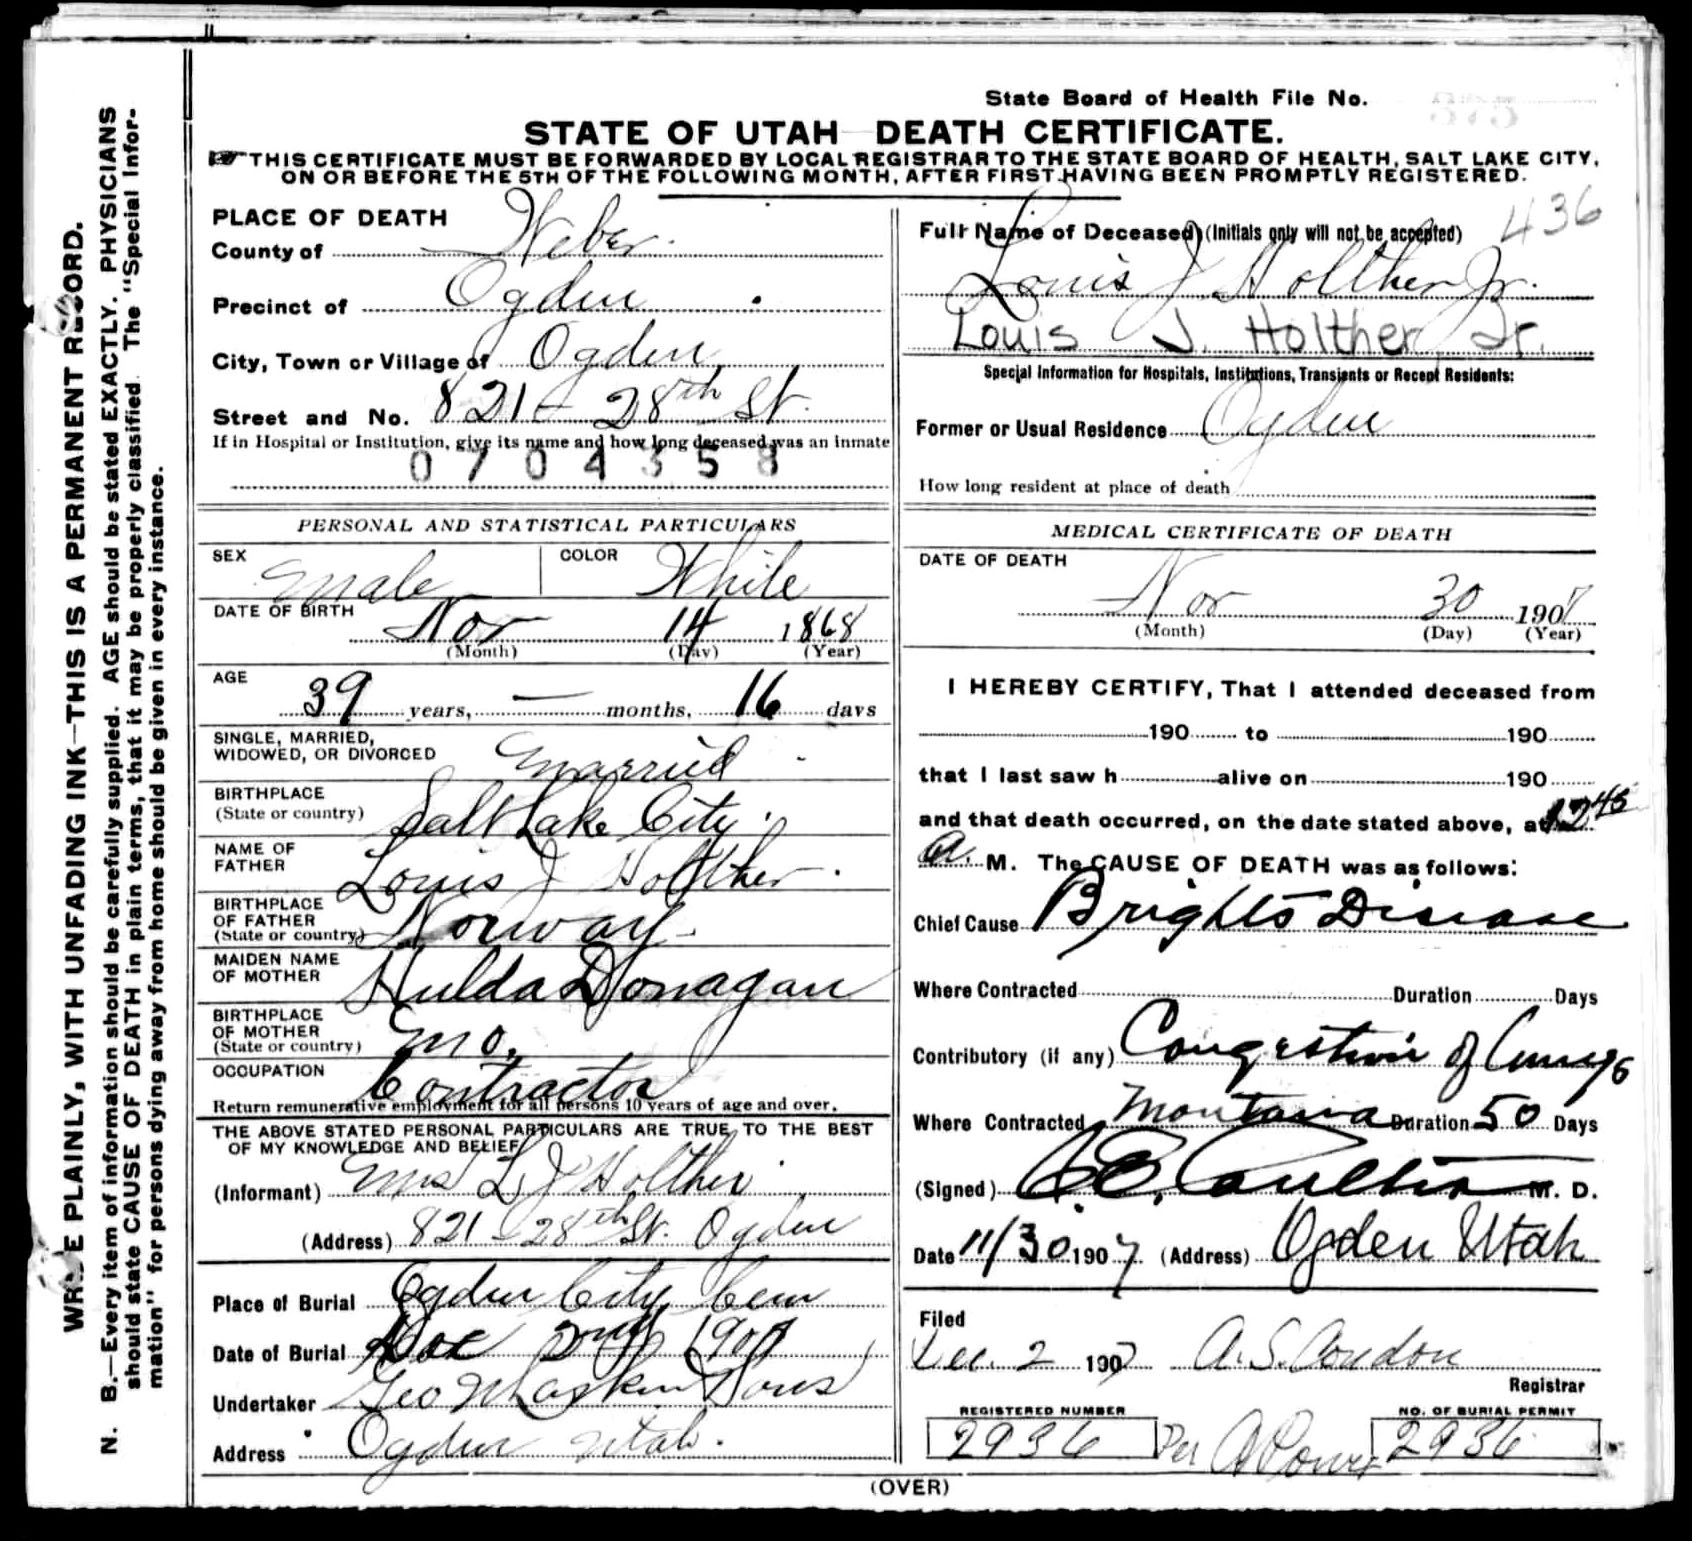 State Board of Health File No.
STATE OF UTAH—DEATH CERTIFICATE.
THIS CERTIFICATE MUST BE FORWARDED BY LOCAL REGISTRAR TO THE STATE BOARD OF HEALTH, SALT LAKE CITY,
ON OR BEFORE THE 5TH OF THE FOLLOWING MONTH, AFTER FIRST HAVING BEEN PROMPTLY REGISTERED.
WRITE PLAINLY, WITH UNFADING INK—THIS IS A PERMANENT RECORD.
N. B.—Every item of information should be carefully supplied. AGE should be stated EXACTLY. PHYSICIANS
should state CAUSE OF DEATH in plain terms, that it may be properly classified. The "Special Infor-
mation" for persons dying away from home should be given in every instance.
PLACE OF DEATH
County of Weber
Precinct of Ogden
City, Town or Village of Ogden
Street and No. 821 - 28th St.
If in Hospital or Institution, give its name and how long deceased was an inmate
0704358
PERSONAL AND STATISTICAL PARTICULARS
SEX Male COLOR White
DATE OF BIRTH Nov 14 1868
(Month) (Day) (Year)
AGE
39 years, — months, 16 days
SINGLE, MARRIED,
WIDOWED, OR DIVORCED Married
BIRTHPLACE
(State or country) Salt Lake City.
NAME OF
FATHER Louis J Holther.
BIRTHPLACE
OF FATHER
(State or country) Norway.
MAIDEN NAME
OF MOTHER Hulda Donagan
BIRTHPLACE
OF MOTHER
(State or country) Mo.
OCCUPATION Contractor
Return remunerative employment for all persons 10 years of age and over.
THE ABOVE STATED PERSONAL PARTICULARS ARE TRUE TO THE BEST
OF MY KNOWLEDGE AND BELIEF
(Informant) Mrs L J Holther
(Address) 821 - 28th St. Ogden
Place of Burial Ogden City Cem
Date of Burial Dec 2nd 1907
Undertaker Geo Sons
Address Ogden Utah.
436
Full Name of Deceased (Initials only will not be accepted)
Louis J Holther Jr.
Louis J. Holther Jr.
Special Information for Hospitals, Institutions, Transients or Recent Residents:
Former or Usual Residence Ogden
How long resident at place of death
MEDICAL CERTIFICATE OF DEATH
DATE OF DEATH
Nov 30 1907
(Month) (Day) (Year)
I HEREBY CERTIFY, That I attended deceased from
190 to 190
that I last saw h alive on 190
and that death occurred, on the date stated above, at 12 45
A. M. The CAUSE OF DEATH was as follows:
Chief Cause Brights Disease
Where Contracted Duration Days
Contributory (if any) Congestion of Lungs
Where Contracted Montana Duration 50 Days
(Signed) M. D.
Date 11/30 1907 (Address) Ogden Utah
Filed
Dec. 2 1907 A. S. Condon
Registrar
REGISTERED NUMBER NO. OF BURIAL PERMIT
2936 Per 2936
(OVER)